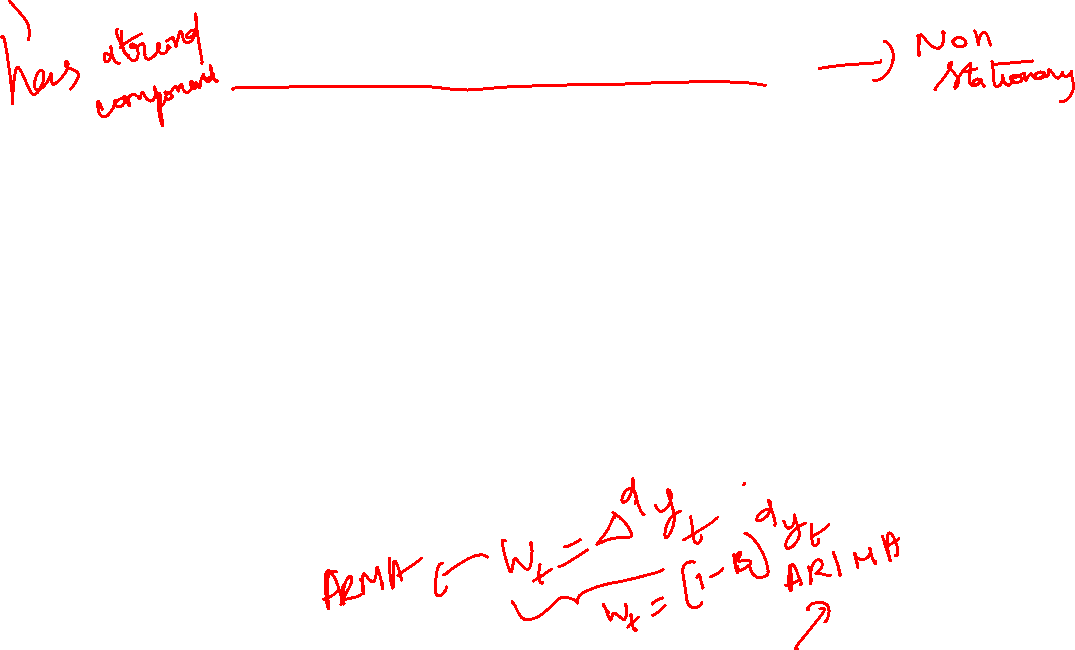 has a trend component → Non Stationary
ARMA ← W_t = Δ^d y_t
W_t = (1-B)^d y_t
ARIMA